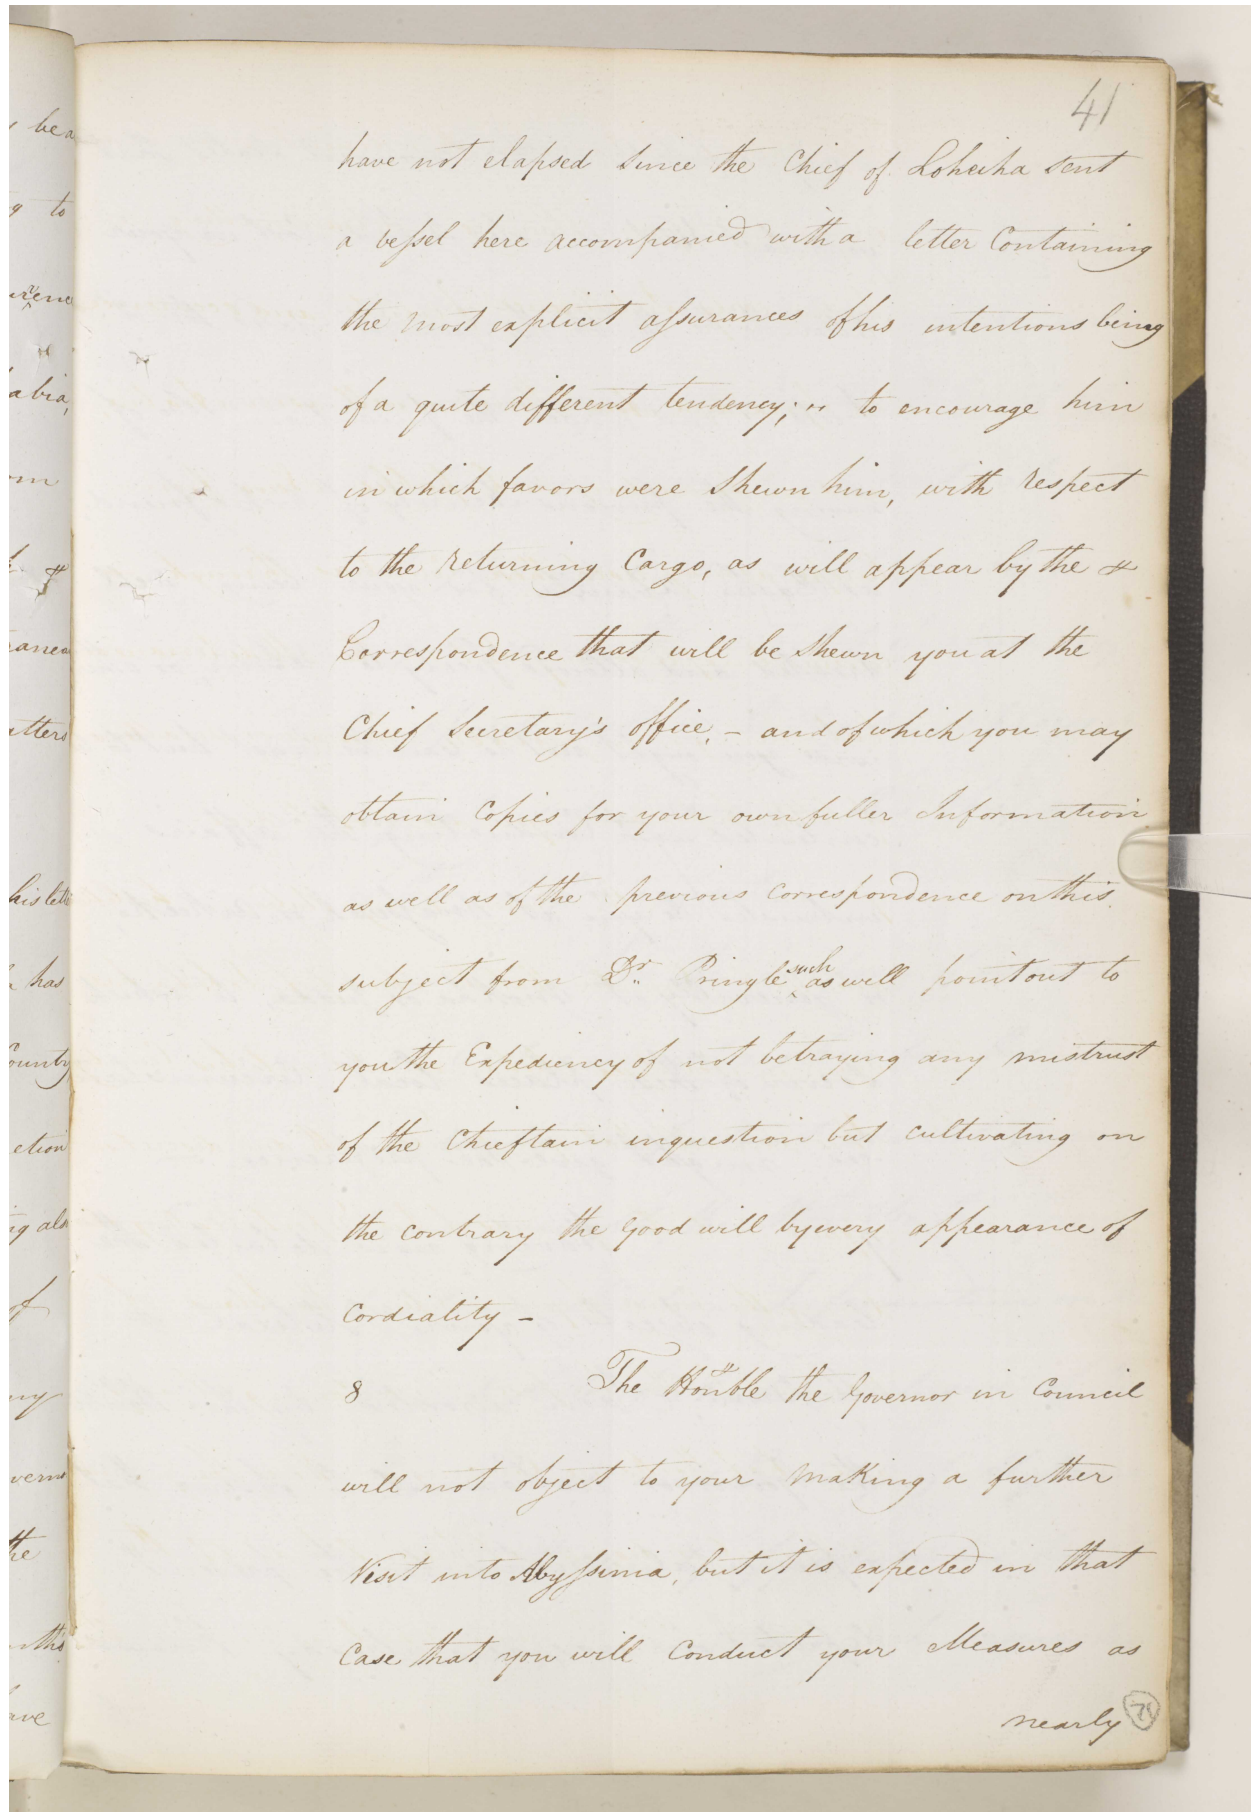 41
have not elapsed since the Chief of Loheiha sent
a vessel here accompanied with a letter Containing
the most explicit assurances of his intentions being
of a quite different tendency; to encourage him
in which favors were shewn him, with respect
to the returning Cargo, as will appear by the
Correspondence that will be shewn you at the
Chief Secretary's office, – and of which you may
obtain Copies for your own fuller Information
as well as of the previous correspondence on this
subject from Dr. Pringle such as will point out to
you the Expediency of not betraying any mistrust
of the Chieftain in question but cultivating on
the contrary the good will by every appearance of
Cordiality –
8 The Honble the Governor in Council
will not object to your making a further
Visit into Abyssinia, but it is expected in that
Case that you will Conduct your Measures as
nearly